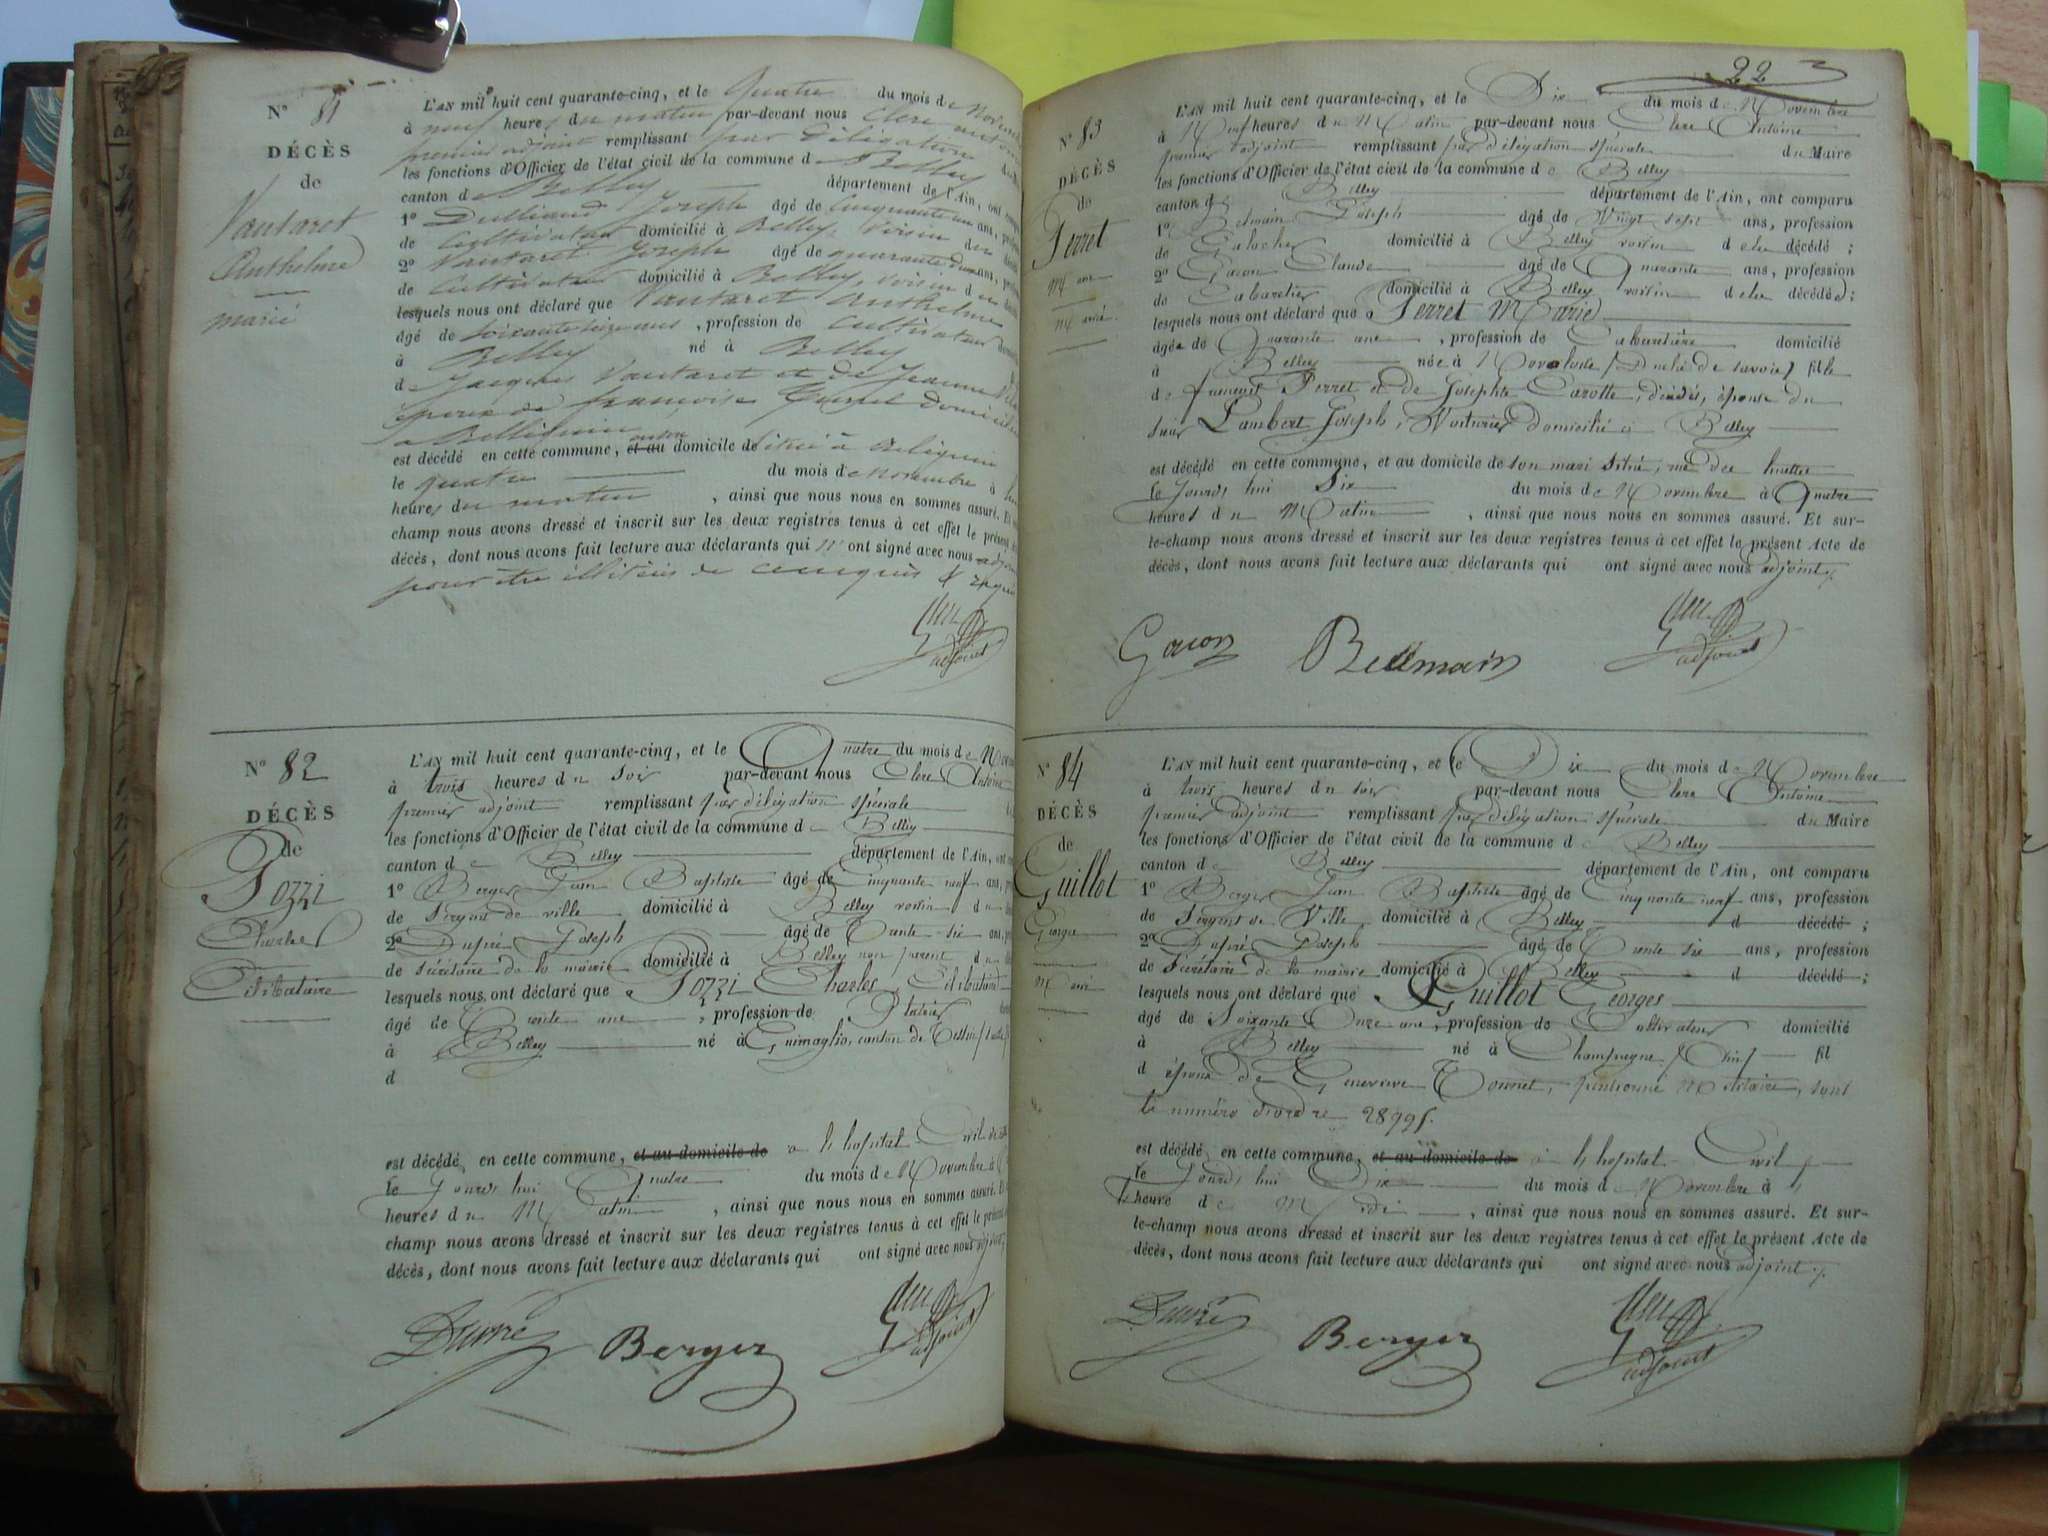 N° 81
DÉCÈS
de
Vautaret
Anthelme
marié
L'AN mil huit cent quarante-cinq, et le Quatre du mois de
à neuf heures du matin par-devant nous Clerc
premier adjoint remplissant par Délégation
les fonctions d'Officier de l'état civil de la commune d Belley
canton de Belley département de l'Ain, ont
1° Dulliand Joseph âgé de Cinquante un ans,
de Cultivateur domicilié à Belley, voisin du
2° Vautaret Joseph âgé de quarante ans,
de Cultivateur domicilié à Belley, voisin du
lesquels nous ont déclaré que Vautaret Anthelme
âgé de soixante seize ans, profession de Cultivateur
à Belley né à Belley
de Jacques Vautaret et de Jeanne
époux de françoise
a
est décédé en cette commune, et au domicile de situé à
le quatre du mois de novembre à
heures du matin, ainsi que nous nous en sommes assuré. Et
champ nous avons dressé et inscrit sur les deux registres tenus à cet effet le présent
décès, dont nous avons fait lecture aux déclarants qui n'ont signé avec nous
pour être illitérés de
adjoint
N° 82
DÉCÈS
de
Pozzi
Charles
Célibataire
L'AN mil huit cent quarante-cinq, et le Quatre du mois de
à trois heures du soir par-devant nous Clerc Antoine
premier adjoint remplissant par délégation spéciale
les fonctions d'Officier de l'état civil de la commune de Belley
canton de Belley département de l'Ain, ont
1° Berger Jean Baptiste âgé de Cinquante neuf ans,
de Sergent de ville domicilié à Belley voisin du
2° Dupré Joseph âgé de Trente six ans,
de Sécrétaire de la mairie domicilié à Belley non parent du
lesquels nous ont déclaré que Pozzi Charles, Célibataire
âgé de Trente ans, profession de Platrier
à Belley né à Gnimaglio, canton de Tessin
d
est décédé en cette commune, et au domicile de à l'hopital Civil
le Jourd'hui Quatre du mois de Novembre à
heures du Matin, ainsi que nous nous en sommes assuré. Et
champ nous avons dressé et inscrit sur les deux registres tenus à cet effet le présent
décès, dont nous avons fait lecture aux déclarants qui ont signé avec nous adjoint
Dupré Berger adjoint
22
N° 83
DÉCÈS
de
Perret
Marie
Mariée
L'AN mil huit cent quarante-cinq, et le Six du mois de Novembre
à Neuf heures du Matin par-devant nous Clerc Antoine
premier adjoint remplissant par délégation spéciale du Maire
les fonctions d'Officier de l'état civil de la commune de Belley
canton de Belley département de l'Ain, ont comparu
1° Belmain Joseph âgé de Vingt sept ans, profession
de Galocher domicilié à Belley voisin d elle décédé ;
2° Gacon Claude âgé de Quarante ans, profession
de Cabaretier domicilié à Belley voisin d elle décédée ;
lesquels nous ont déclaré que Perret Marie
âgée de Quarante ans, profession de Cabaretière domicilié
à Belley née à Novalaise (Duché de savoie) fille
de françois Perret et de Josephte Carotte, décédés, épouse du
sieur Lambert Joseph, Voiturier domicilié à Belley
est décédé en cette commune, et au domicile de son mari situé,
le Jourd'hui Six du mois de Novembre à Quatre
heures du Matin, ainsi que nous nous en sommes assuré. Et sur-
le-champ nous avons dressé et inscrit sur les deux registres tenus à cet effet le présent Acte de
décès, dont nous avons fait lecture aux déclarants qui ont signé avec nous adjoint
Gacon Bellmain adjoint
N° 84
DÉCÈS
de
Guillot
George
Marié
L'AN mil huit cent quarante-cinq, et le Dix du mois de Novembre
à trois heures du soir par-devant nous Clerc Antoine
premier adjoint remplissant par délégation spéciale du Maire
les fonctions d'Officier de l'état civil de la commune de Belley
canton de Belley département de l'Ain, ont comparu
1° Berger Jean Baptiste âgé de Cinquante neuf ans, profession
de Sergent de Ville domicilié à Belley d décédé ;
2° Dupré Joseph âgé de Trente six ans, profession
de Sécrétaire de la mairie domicilié à Belley d décédé ;
lesquels nous ont déclaré que Guillot Georges
âgé de Soixante Onze ans, profession de Cultivateur domicilié
à Belley né à Champagne (Ain) fil
d époux de Genevieve Tournet, pensionné Militaire, sous
le numéro d'ordre 28995.
est décédé en cette commune, et au domicile de à l'hopital Civil
le Jourd'hui Dix du mois de Novembre à
heure de Midi, ainsi que nous nous en sommes assuré. Et sur-
le-champ nous avons dressé et inscrit sur les deux registres tenus à cet effet le présent Acte de
décès, dont nous avons fait lecture aux déclarants qui ont signé avec nous adjoint
Dupré Berger adjoint